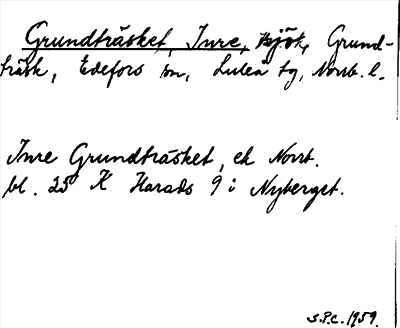 Grundträsket, Inre, sjö, Grund-
träsk, Edefors sn, Luleå tg, Norrb. l.
Inre Grundträsket, ek Norrb.
bl. 25 K Harads 9 i Nyberget.
S.P.C. 1959.